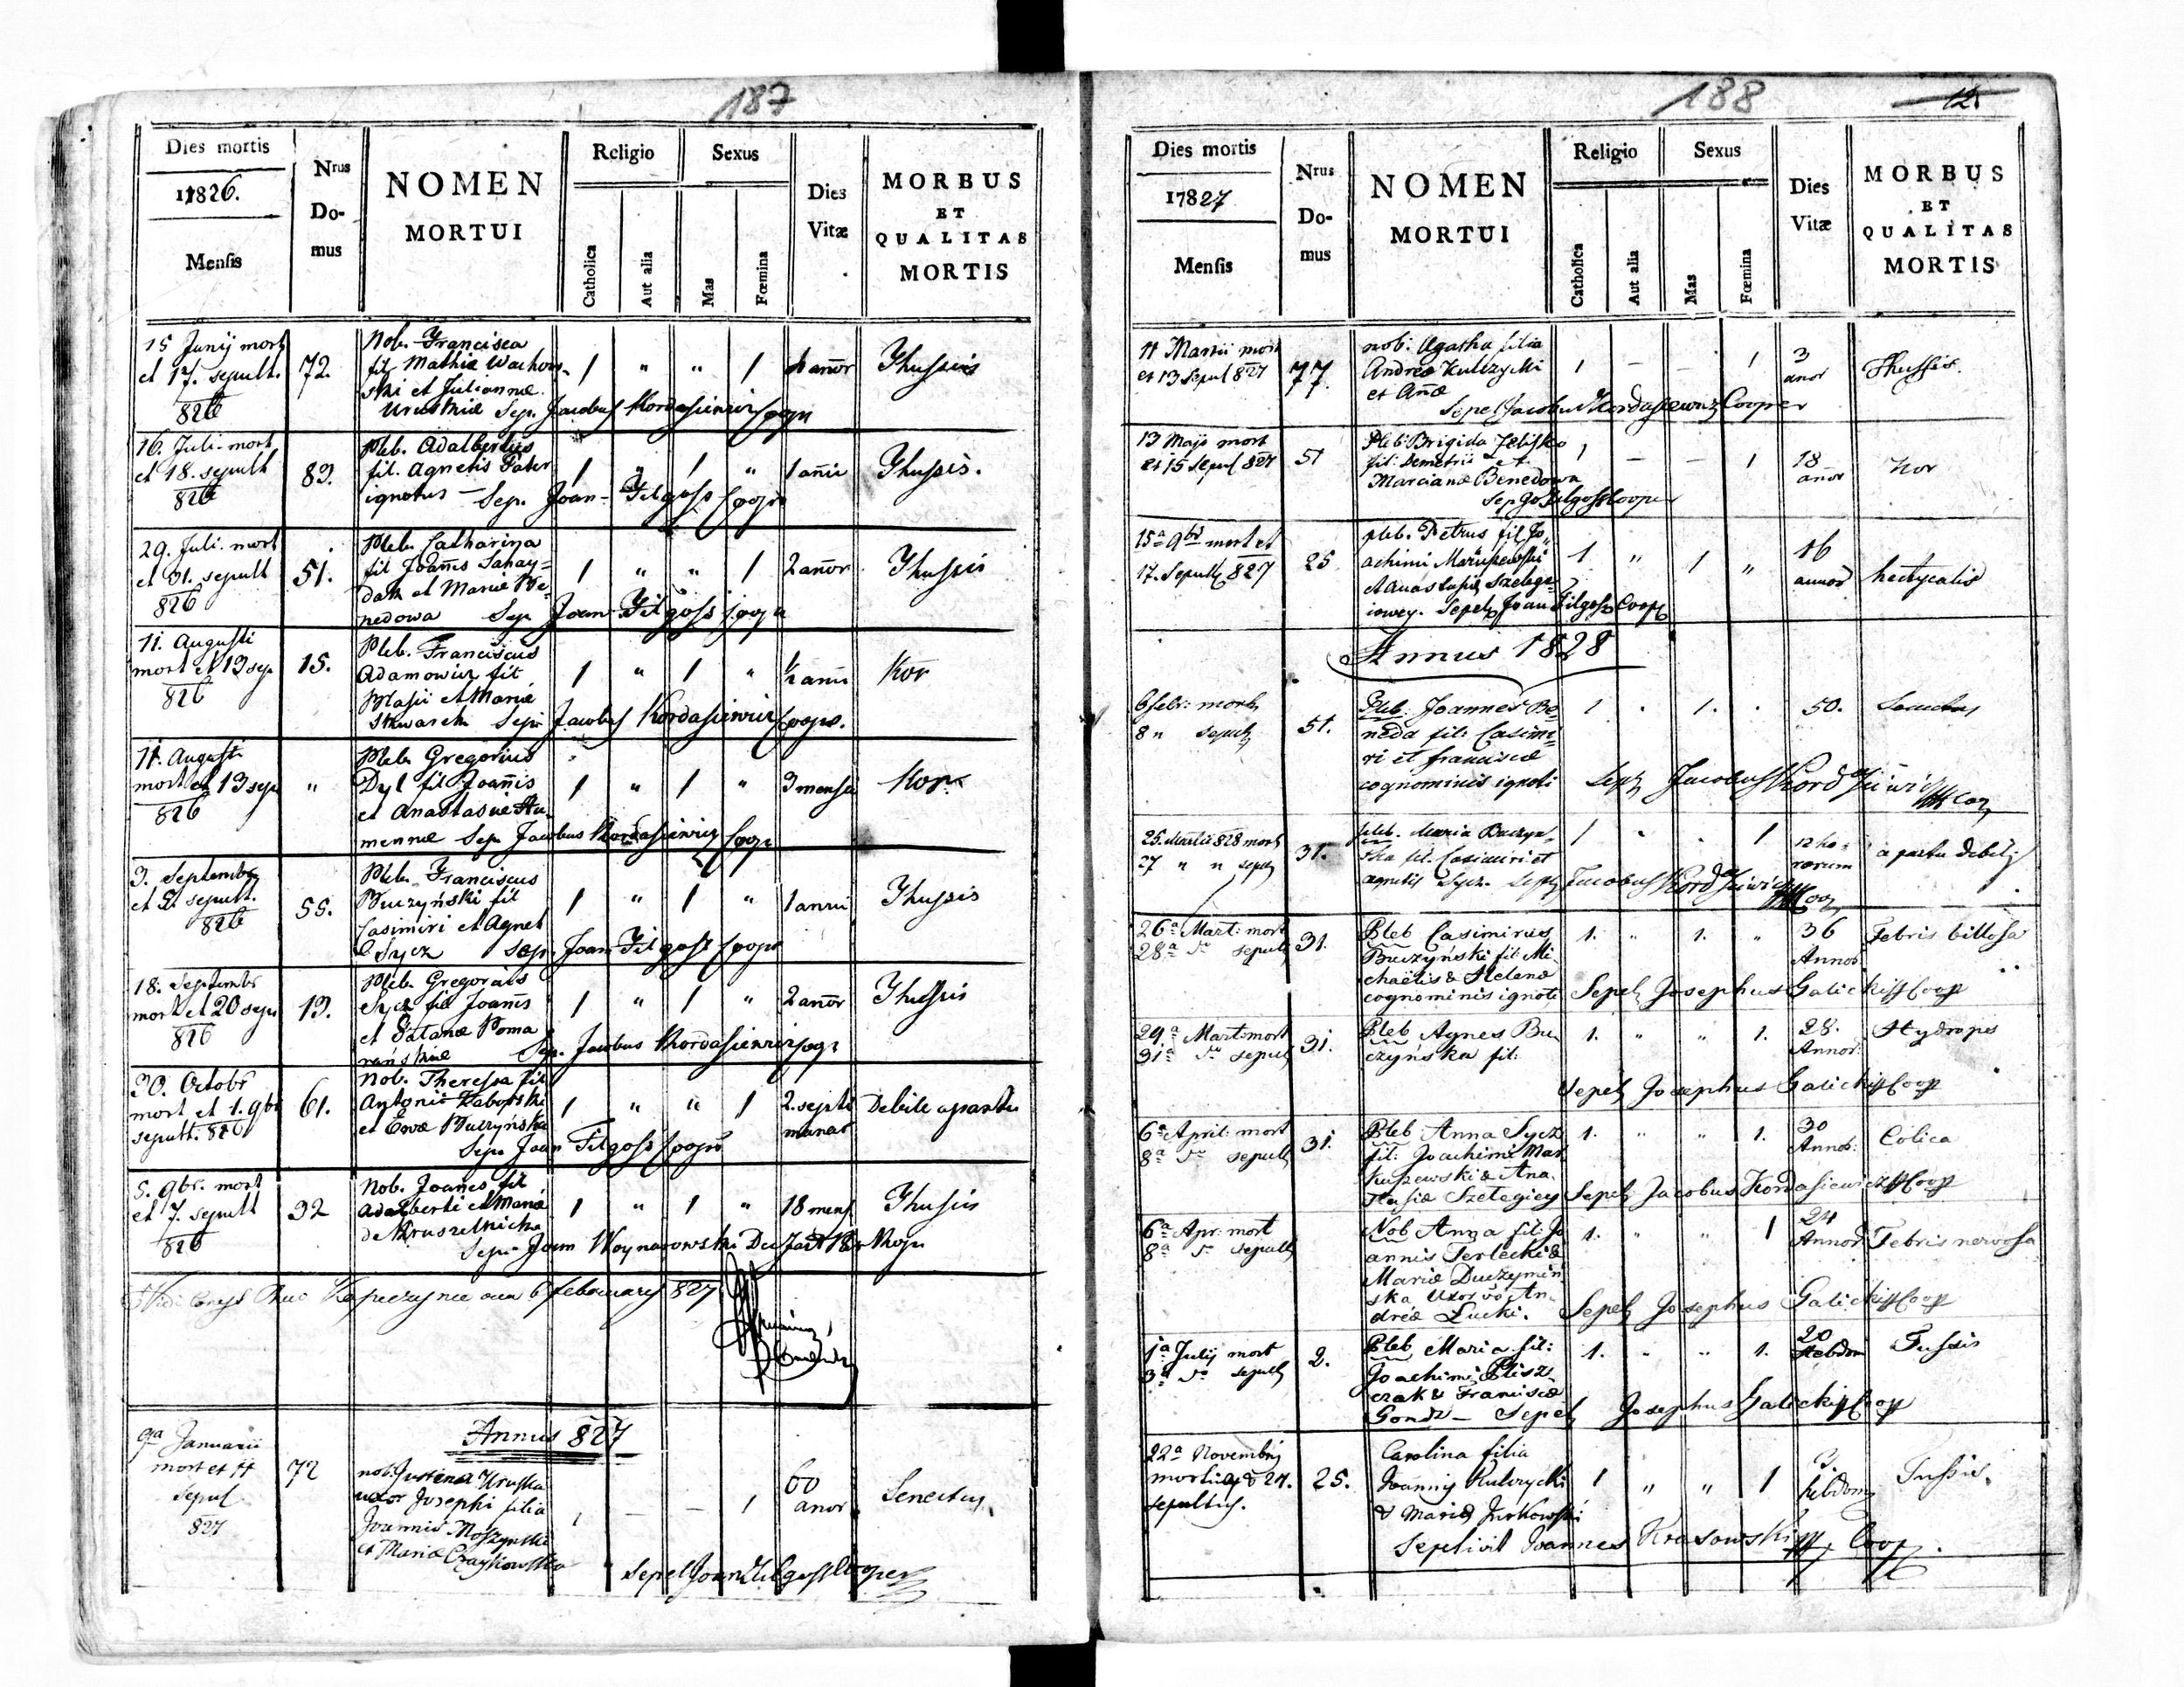 187
Dies mortis
1826.
Mensis
Nrus
Do-
mus
NOMEN
MORTUI
Religio
Catholica
Aut alia
Sexus
Mas
Fœmina
Dies
Vitæ
MORBUS
ET
QUALITAS
MORTIS
15 Junij mort
et 17. sepult.
826
72.
Nob. Francisca
fil Mathiæ Wachow-
ski et Juliannæ
Sep. Jacobus Kordasiewicz Coopr
1 " " 1
annor
Thussis
16. Juli. mort
et 18. sepult
826
83.
Pleb. Adalbertus
fil. Agnetis Pater
ignotus — Sep. Joan- Filgoss Coopr
1 " 1 "
1 anni
Thussis.
29. Juli. mort
et 31. sepult
826
51.
Pleb. Catharina
fil Joañis Sahay-
dak et Mariæ Be-
nedowa Sep. Joan Filgoss Coopr
1 " " 1
2 anor
Thussis
11. Augusti
mort et 13 sep
826
15.
Pleb. Franciscus
Adamowicz fil
Blasii et Mariæ
Skwarek Sep. Jacobus Kordasiewicz Coopr.
1 " 1 "
½ anni
Kor
11. Augusti
mort et 13 sep
826
"
Pleb. Gregorius
Dyl fil Joañis
et Anastasiæ Hu-
mennæ Sep. Jacobus Kordasiewicz Coopr
1 " 1 "
3 mensis
Kor.
3. Septembr
et 5. sepult.
826
55.
Pleb. Franciscus
Buczyński fil
Casimiri et Agnet
Sycz Sep. Joan Filgoss Coopr
1 " 1 "
1 anni
Thussis
18. Septembr
mort et 20 sepu
826
13.
Pleb. Gregorius
Sycz fil Joañis
et Tatanæ Poma
ranskiæ Sep. Jacobus Kordasiewicz Coopr
1 " 1 "
2 anor
Thussis
30. Octobr
mort et 1. 9br
sepult. 826
61.
Nob. Theressa fil
Antonii
et Evæ Buczyńska
Sep. Joan Filgoss Coopr
1 " " 1
2. septi
manar
Debile a partu
5. 9br. mort
et 7. sepult
826
32
Nob. Joañes fil
Adalberti et Mariæ
de Kruszelnicka
Sep. Joan Woynarowski
1 " 1 "
18 mens
Thussis
6 februarij 827
Annus 827
9a Januarii
mort et 11
sepul.
827
72
nob. Justina
uxor Josephi filia
Joannis
et Mariæ Czaykowska
Sepel Joan Filgoss Cooper
1 — — 1
60
anor
Senectus.
188
12.
Dies mortis
17827
Mensis
Nrus
Do-
mus
NOMEN
MORTUI
Religio
Catholica
Aut alia
Sexus
Mas
Fœmina
Dies
Vitæ
MORBUS
ET
QUALITAS
MORTIS
11 Martii mort
et 13 Sepul 827
77.
nob: Agatha filia
Andreæ Kulczycki
et Añæ
Sepel Jacobus Kordasiewicz Cooper
1 — — 1
3
anor
Thussis.
13 Maji mort
et 15 Sepul 827
51
Pleb: Brigida
fil: Demetrii et
Marcianæ Benedowa
Sep Jo Filgoss Cooper
1 — — 1
18
anor
Kor
15a 9bris mort et
17. Sepult 827
25
pleb. Petrus fil Jo
achimi Markuszewski
et Anastasiæ Szelege
iowey. Sepel Joan Filgoss Coopr
1 " 1 "
16
annor
hectycalis
Annus 1828
6 febr: mort
8 " sepult
51.
Pleb. Joannes Be-
neda fil: Casimi-
ri et franciscæ
cognominis ignoti
Sep Jacobus Kordasiewicz Coop
1 . 1. .
50.
Senectus
25. Martii 828 mort
27 " " sepult
31.
pleb. Maria Buczyn-
ska fil. Casimiri et
Agnetis Sycz. Sep Jacobus Kordasiewicz Coop
1 " . 1
12 ho-
rarum
a partu debilis
26a Mart: mort
28a do sepult
31.
Pleb Casimirus
Buczyński fil: Mi-
chaëlis & Helenæ
cognominis ignoti Sepel Josephus Galickij Coop
1. " 1. "
36
Annor
Febris billosa
29a Mart: mort
31a do sepult
31.
Pleb Agnes Bu
czyńska fil:
Sepel Josephus Galickij Coop
1. " " 1.
28.
Annor:
Hydropes
6a April: mort
8a do sepult
31.
Pleb Anna Sycz
fil: Joachimi Mar
kuszewski & Ana
stasiæ Szelegiey Sepel Jacobus Kordasiewicz Coop
1. " " 1.
30
Annor:
Colica
6a Apr: mort
8a do sepult
Nob Anna fil: Jo
annis Terlecki &
Mariæ
ska Uxor vo An-
dreæ Łucki. Sepel Josephus Galickij Coop
1. " " 1
24
Annor
Febris nervosa
1a Julij mort
3a do sepult
2.
Pleb Maria fil:
Joachimi Blisz
czak & Franciscæ
Gondz — Sepel Josephus Galickij Coop
1. " " 1.
20
Hebdom
Tussis
22a Novembris
mortua & 24.
sepultus.
25.
Carolina filia
Joannis Kulczycki
& Mariæ Jurkowski
Sepelivit Joannes Krasowski Coop.
1 " " 1
3.
hebdom
Tussis.